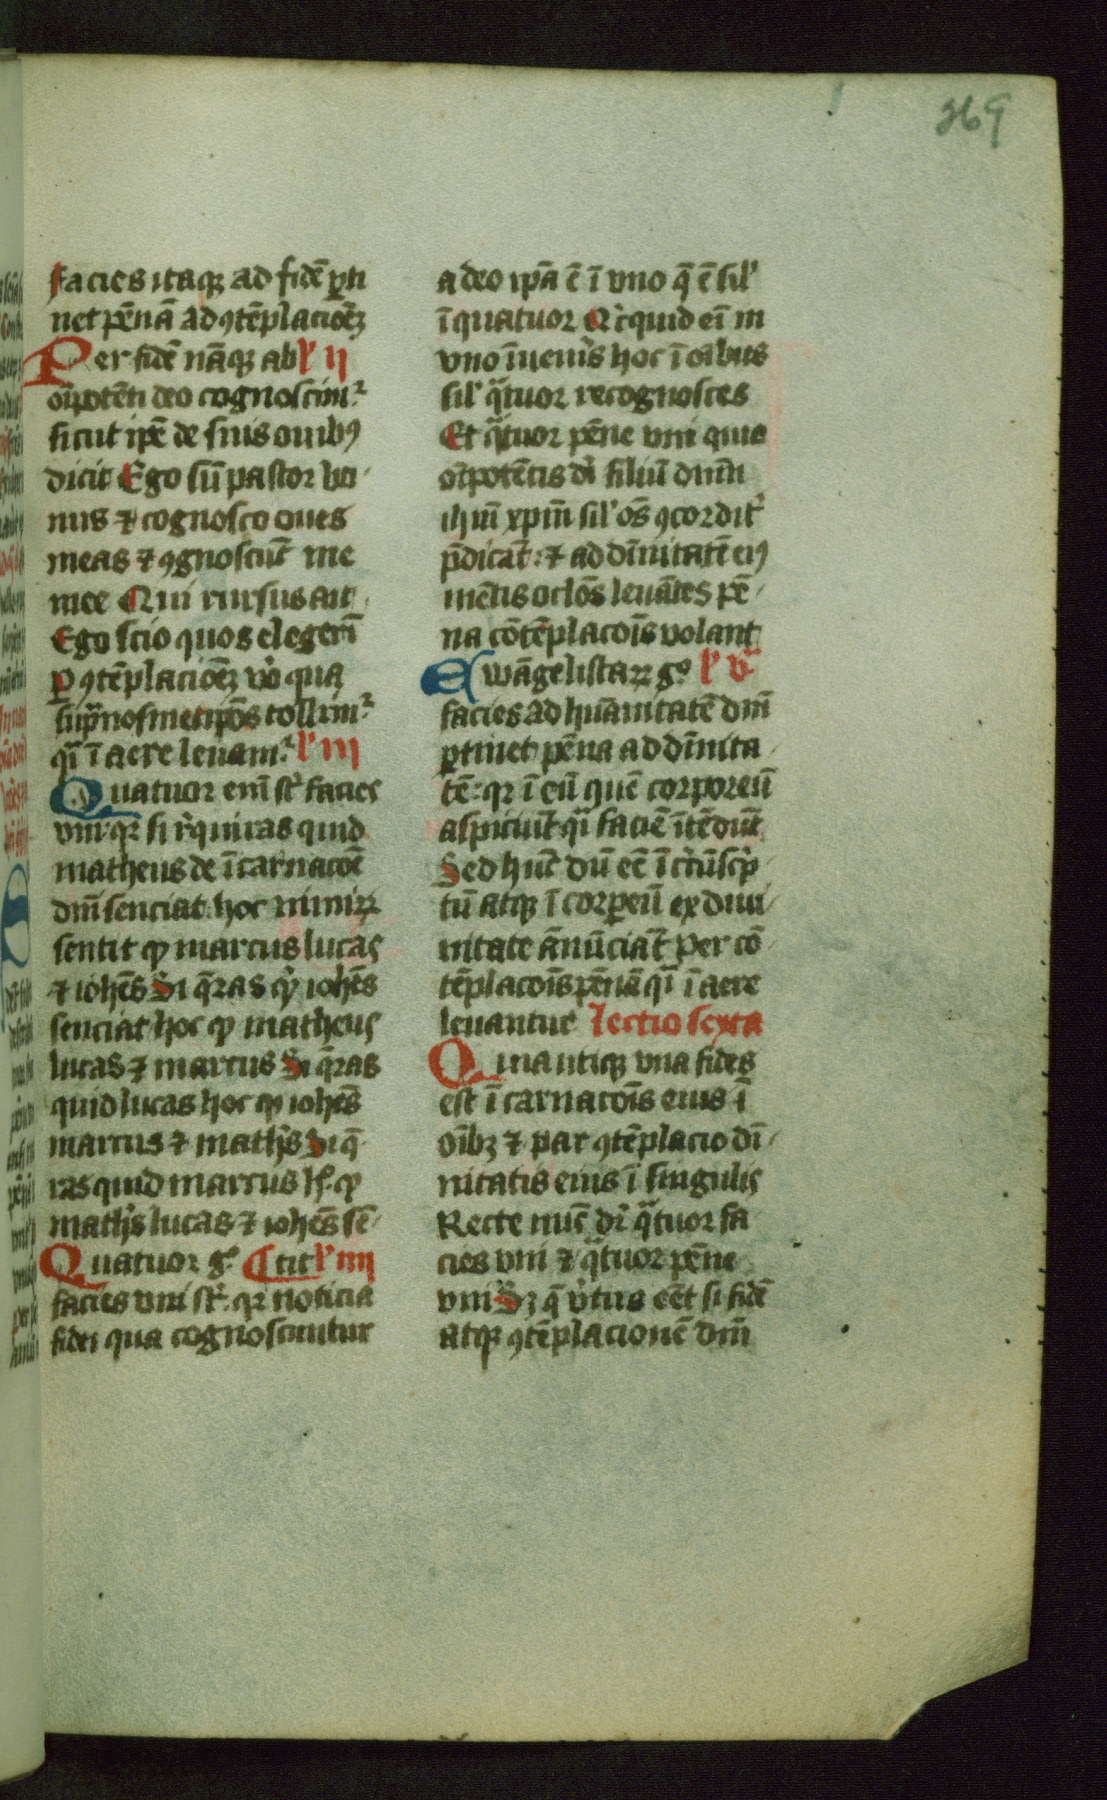 369
facies itaqꝫ ad fidē ꝑti
net pēna ad ꝯtēplacioēꝫ
Per fidē nāqꝫ ab lº ii
oīpotēti deo cognoscimᷣ
sicut ip̄e de suis ouibꝰ
dicit Ego sū pastor bo
nus ⁊ cognosco oues
meas ⁊ ꝯgnoscūt me
mee Qui rursus ait
Ego scio quos elegerī
ꝑ ꝯtēplacioēꝫ vᷣo qua
sup̄ nosmetip̄os tollimᷣ
qͣī ī aere leuamᷣ lº iii
Quatuor enī st᷒ facies
vni qꝛ si rͤquiras quid
matheus de īcarnacōe
dn̄i senciat hoc nimiꝝ
sentit qͦ marcus lucas
⁊ ioh̄es Si q̄ras qͥd ioh̄es
senciat hoc qͦ matheus
lucas ⁊ marcus Si q̄ras
quid lucas hoc qͦ ioh̄es
marcus ⁊ math's Si q̄
ras quid marcus h' qͦ
math's lucas ⁊ ioh̄es sē
Quatuor gͦ ¶ tit lº iiii
facies vni st᷒ qꝛ noticia
fidei qua cognoscuntur
a deo ip̄a ē ī vno q̄ ē sil'
ī quatuor Qͥcquid eī in
vno īueniͥs hoc ī oībus
sil' qͣtuor recognosces
Et qͣtuor pēne vni quia
oīpotētis dī filiū dn̄m
ih̄m xp̄m sil' oēs ꝯcordit᷒
p̄dicāt ⁊ ad diuītatē eiꝰ
mētis oclōs leuātes pē
na cōtēplacōis volant
Ewāgelistaꝝ gͦ lº v
facies ad hūanitatē dn̄i
ꝑtinet pēna ad diuīta
tē qꝛ ī eū quē corporeū
aspiciūt qͣī faciē ītēdūt
Sed hūc dū eē ī cͥcūscͥp
tū atqꝫ ī corꝑeū ex diui
nitate ānūciāt per cō
tēplacōis pēnā qͣī ī aere
leuantur lectio sexta
Quia utiqꝫ vna fides
est ī carnacōis eius ī
oībꝫ ⁊ par ꝯtēplacio di
nitatis eius ī singulis
Recte nūc dͬ qͣtuor fa
cies vni ⁊ qͣtuor pēne
vni Sꝫ q̄ vͥtus eēt si fidē
atqꝫ ꝯtēplacionē dn̄i